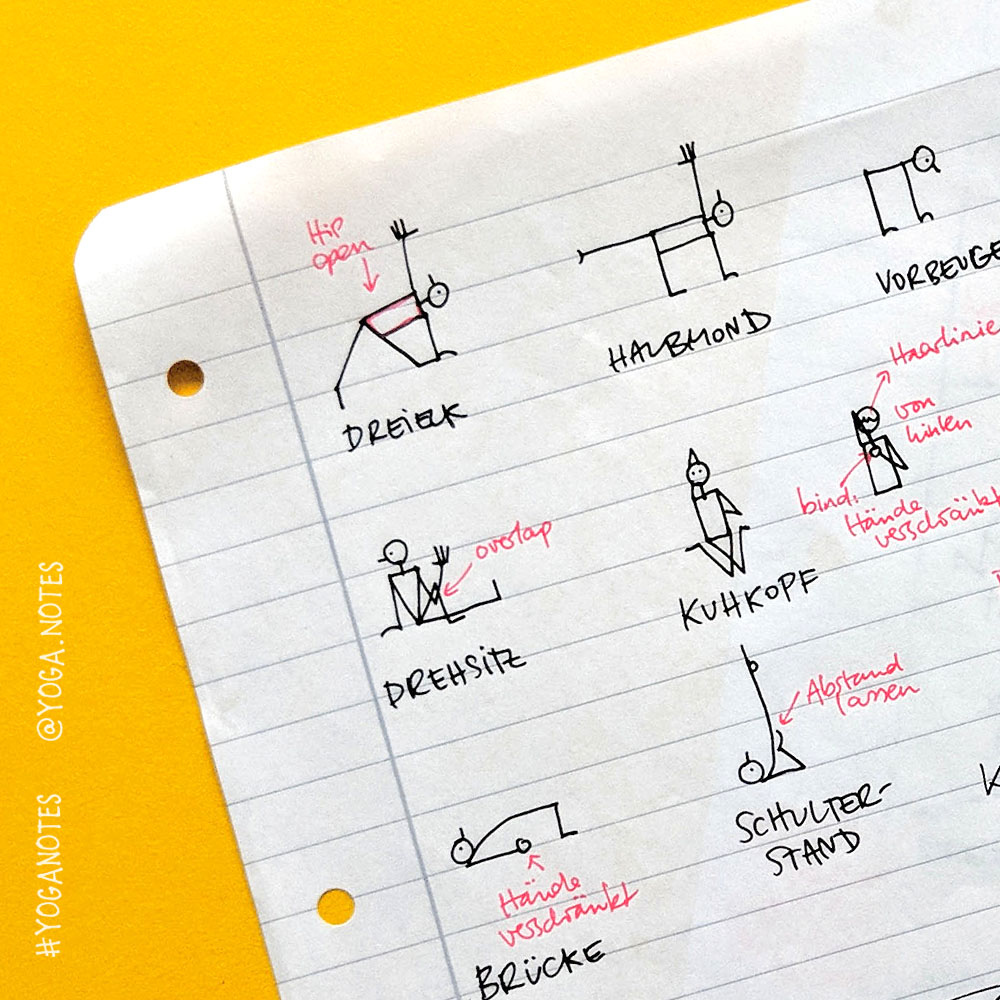 Hip
open
DREIECK
HALBMOND
VORBEUGE
Haarlinie
von
hinten
bind:
Hände
verschränkt
overlap
DREHSITZ
KUHKOPF
Abstand
lassen
SCHULTER-
STAND
K
Hände
verschränkt
BRÜCKE
#YOGANOTES @YOGA.NOTES